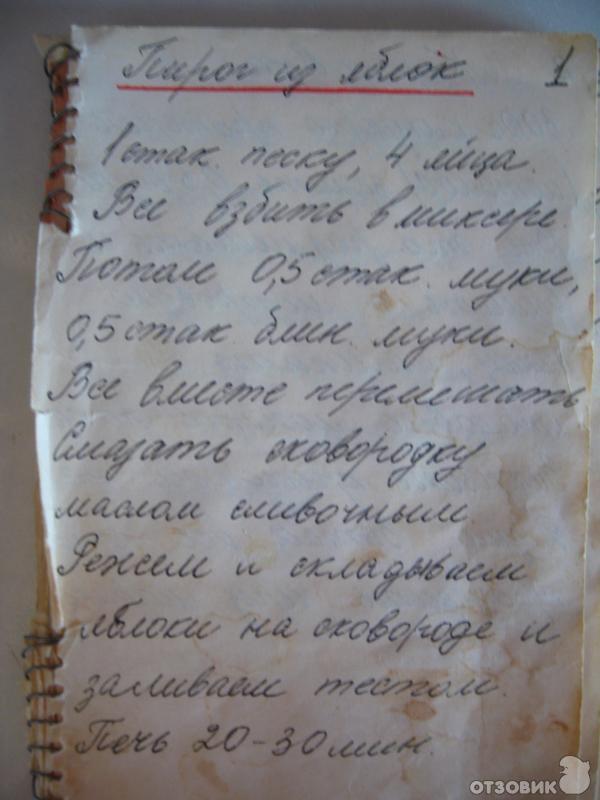 Пирог из яблок 1
1 стак. песку, 4 яйца.
Все взбить в миксере.
Потом 0,5 стак. муки,
0,5 стак. блин. муки.
Все вместе перемешать
Смазать сковородку
маслом сливочным.
Режем и складываем
яблоки на сковороде и
заливаем тестом.
Печь 20-30 мин.
ОТЗОВИК